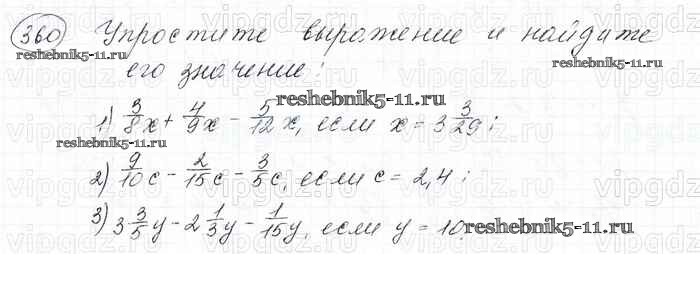 360 Упростите выражение и найдите
reshebnik5-11.ru reshebnik5-11.ru
его значение:
reshebnik5-11.ru
1) 3/8 x + 4/9 x - 5/12 x, если x = 3 3/29;
reshebnik5-11.ru
2) 9/10 c - 2/15 c - 3/5 c, если c = 2,4;
3) 3 3/5 y - 2 1/3 y - 1/15 y, если y = 10.
reshebnik5-11.ru